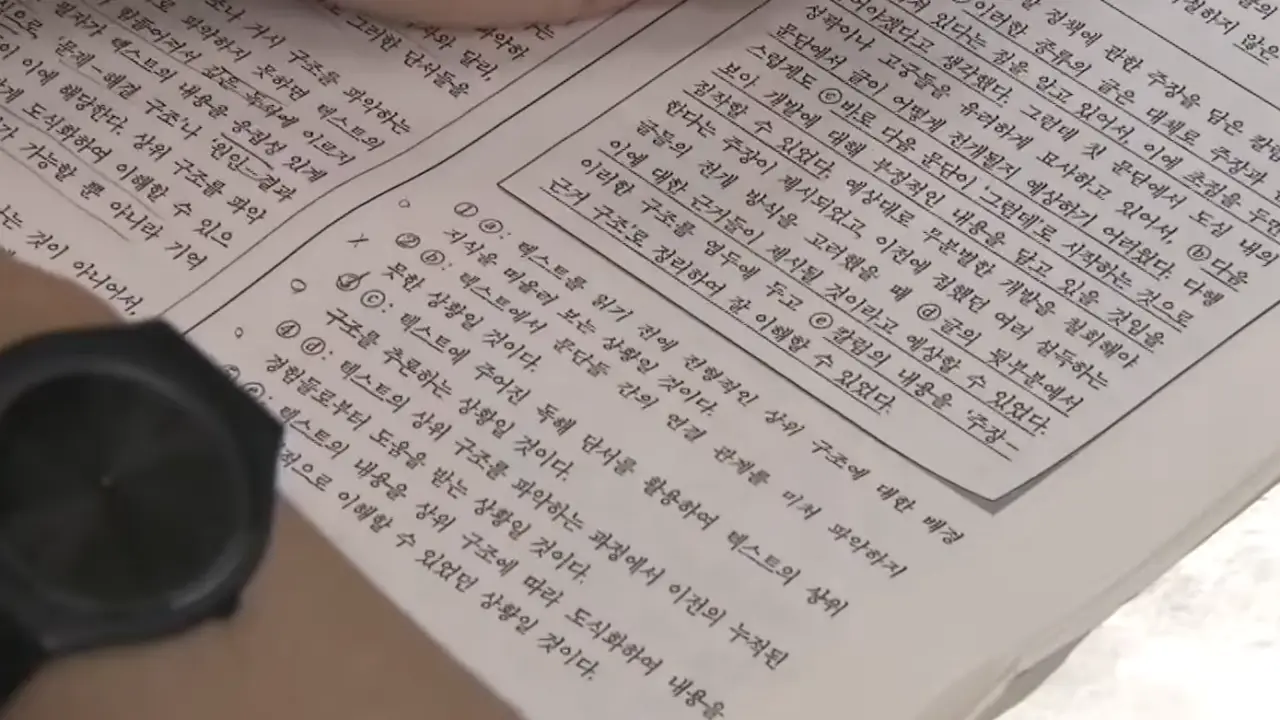 는
와 달리,
그러한 단서들을
나 거시 구조를 파악하는
로 파악하지 못하면 텍스트의
함몰되어서 표준 독서에 이르지
필자가 텍스트의 내용을 응집성 있게
'문제-해결 구조'나 '원인-결과
이 이에 해당한다. 상위 구조를 파악
하게 도식화하여 이해할 수 있으
가 가능할 뿐 아니라 기억
는 것이 아니어서,
정책에 관한 주장을 담은 칼럼
이러한 종류의 글은 대체로 주장과
있다는 점을 알고 있어서, 이에 초점을 두면
어야겠다고 생각했다. 그런데 첫 문단에서 도심 내의
성곽이나 고궁들을 유려하게 묘사하고 있어서, ⓑ다음
문단에서 글이 어떻게 전개될지 예상하기 어려웠다. 다행
스럽게도 ⓒ바로 다음 문단이 '그런데'로 시작하는 것으로
보아 개발에 대해 부정적인 내용을 담고 있을 것임을
짐작할 수 있었다. 예상대로 무분별한 개발을 철회해야
한다는 주장이 제시되었고, 이전에 접했던 여러 설득하는
글들의 전개 방식을 고려했을 때 ⓓ글의 뒷부분에서
이에 대한 근거들이 제시될 것이라고 예상할 수 있었다.
이러한 구조를 염두에 두고 ⓔ칼럼의 내용을 '주장-
근거 구조'로 정리하여 잘 이해할 수 있었다.
① ⓐ: 텍스트를 읽기 전에 전형적인 상위 구조에 대한 배경
지식을 떠올려 보는 상황일 것이다.
② ⓑ: 텍스트에서 문단들 간의 연결 관계를 미처 파악하지
못한 상황일 것이다.
③ ⓒ: 텍스트에 주어진 독해 단서를 활용하여 텍스트의 상위
구조를 추론하는 상황일 것이다.
④ ⓓ: 텍스트의 상위 구조를 파악하는 과정에서 이전의 누적된
경험들로부터 도움을 받는 상황일 것이다.
⑤ ⓔ: 텍스트의 내용을 상위 구조에 따라 도식화하여 내용을
적으로 이해할 수 있었던 상황일 것이다.